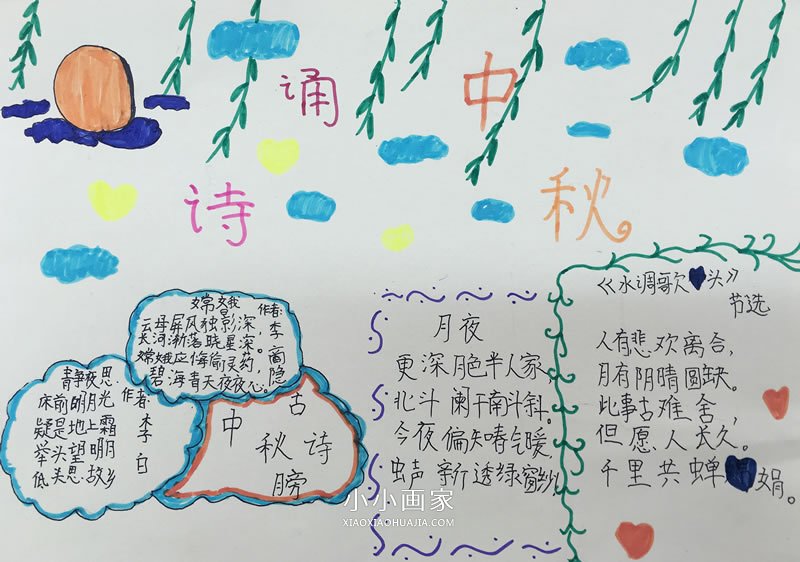 诵中
诗秋
嫦娥
作者:李商隐
云母屏风独影深,
长河渐落晓星深。
嫦娥应悔偷灵药,
碧海青天夜夜心。
静夜思
作者:李白
床前明月光
疑是地上霜
举头望明月
低头思故乡
中秋古诗膀
月夜
更深月色半人家,
北斗阑干南斗斜。
今夜偏知春气暖,
虫声新透绿窗纱
《水调歌头》
节选
人有悲欢离合,
月有阴晴圆缺。
此事古难舍,
但愿人长久。
千里共蝉娟。
小小画家
XIAOXIAOHUAJIA.COM